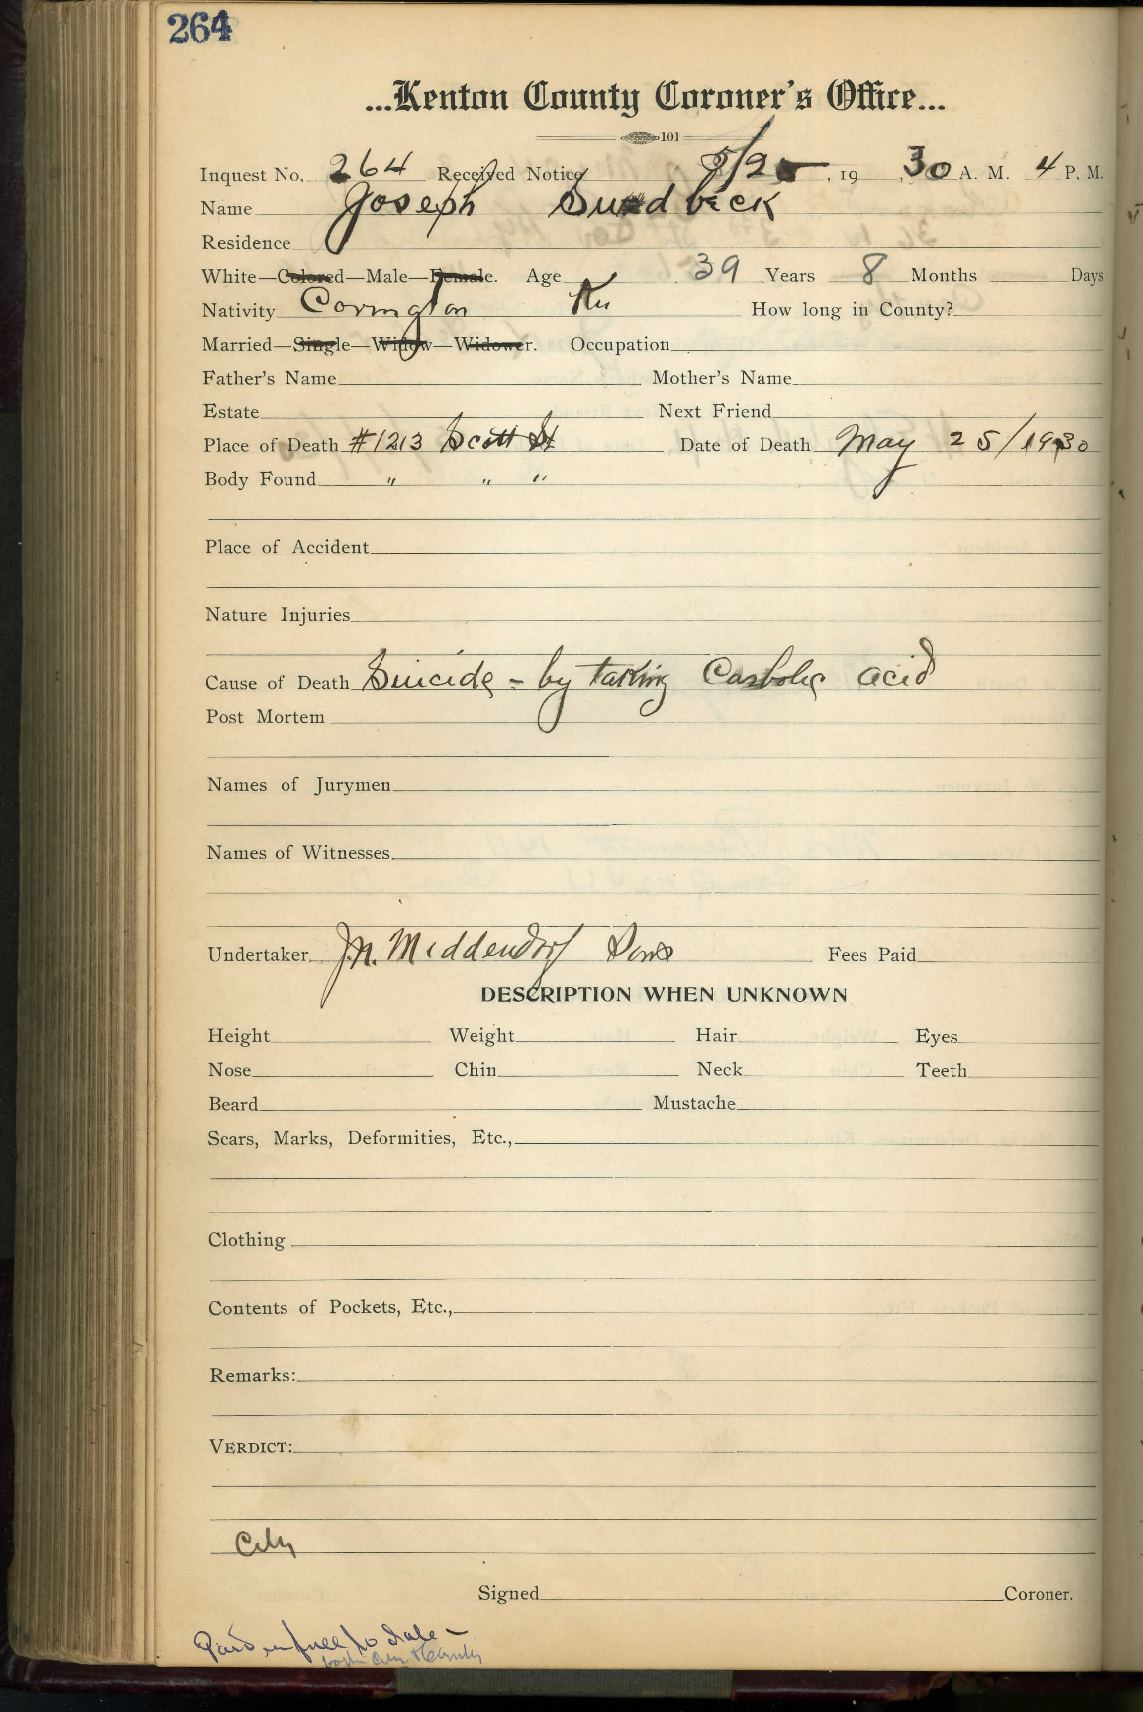 264
...Kenton County Coroner's Office...
101
Inquest No. 264 Received Notice 5/25, 19 30 A. M. 4 P. M.
Name Joseph Sundbeck
Residence
White—Colored—Male—Female. Age 39 Years 8 Months Days
Nativity Covington Ky How long in County?
Married—Single—Widow—Widower. Occupation
Father's Name Mother's Name
Estate Next Friend
Place of Death #1213 Scott St Date of Death May 25/1930
Body Found " " "
Place of Accident
Nature Injuries
Cause of Death Suicide - by taking Carbolic acid
Post Mortem
Names of Jurymen
Names of Witnesses
Undertaker J.N. Middendorf Sons Fees Paid
DESCRIPTION WHEN UNKNOWN
Height Weight Hair Eyes
Nose Chin Neck Teeth
Beard Mustache
Scars, Marks, Deformities, Etc.,
Clothing
Contents of Pockets, Etc.,
Remarks:
VERDICT:
City
Signed Coroner.
Paid in full to date —
both City & County